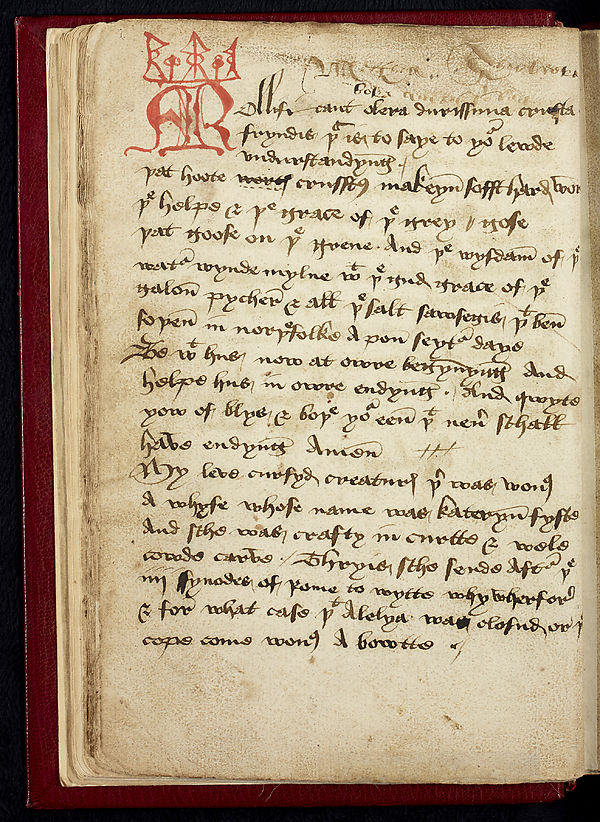 Mollifi cant olera durissima crusta
fryndis þͥ is to saye to yoͬ lewde
undurstandyng
þat hoote worts crusstꝭ makeyn sofft hard wort
þͤ helpe & þͤ grace of þͤ grey gose
þat goose on þͤ grene And þͤ wysdam of þͤ
watͬ wynde mylne wͭ þͤ gud grace of þͤ
galon pycher & all þͤ salt sawsegis þͭ ben
soþen in norþͤfolke A pon seytͬ daye
Be wͭ hus now at owre begynnyng And
helpe hus in owre endyng And qwyte
yow of blys & boþͤ yoͬ een þͭ neuͬ schall
have endyng Amen
My leve cursyd creaturꝭ þͬ was wonꝰ
A whyfe whose name was kateryn fyste
And sche was crafty in curtte & wele
cowde carve Thryis sche sende aftͬ þͤ
iiij synodes of pome to wytte why wherforͤ
& for what case þͭ Alelya was closud or þ
cope come wonꝰ A bowtte